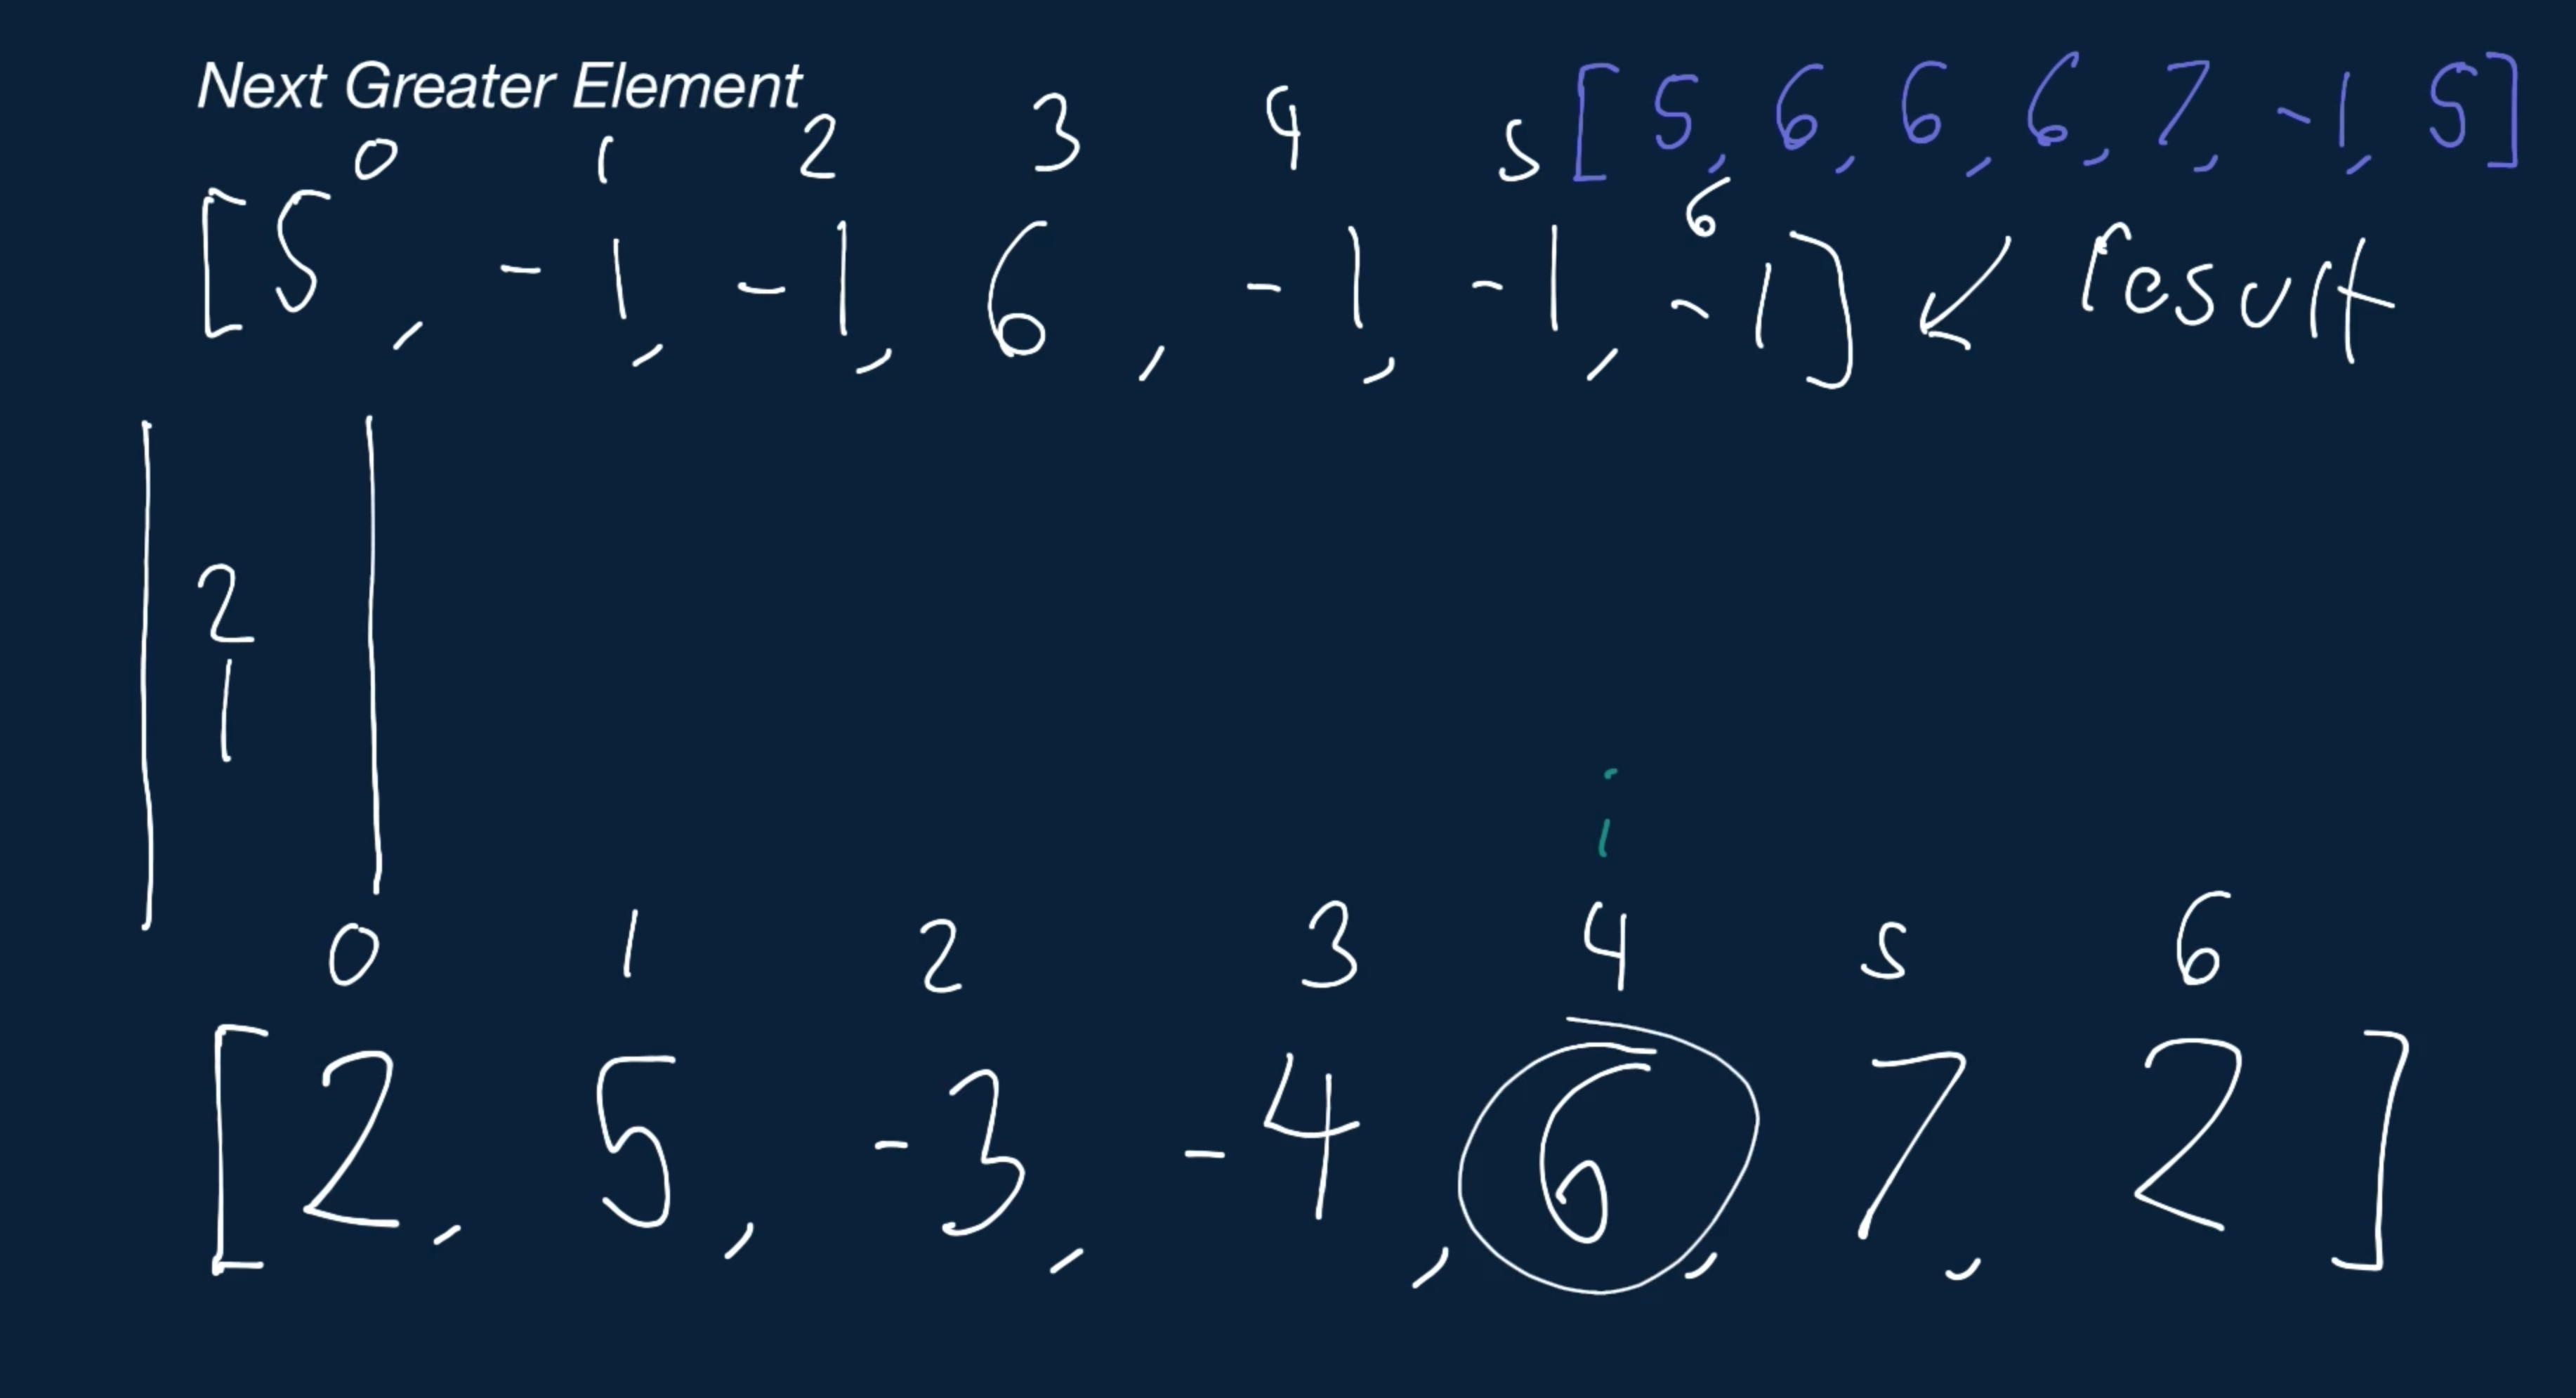 Next Greater Element
[5, 6, 6, 6, 7, -1, 5]
0 1 2 3 4 5 6
[5, -1, -1, 6, -1, -1, -1] ↙ result
2
1
i
0 1 2 3 4 5 6
[2, 5, -3, -4, 6, 7, 2]